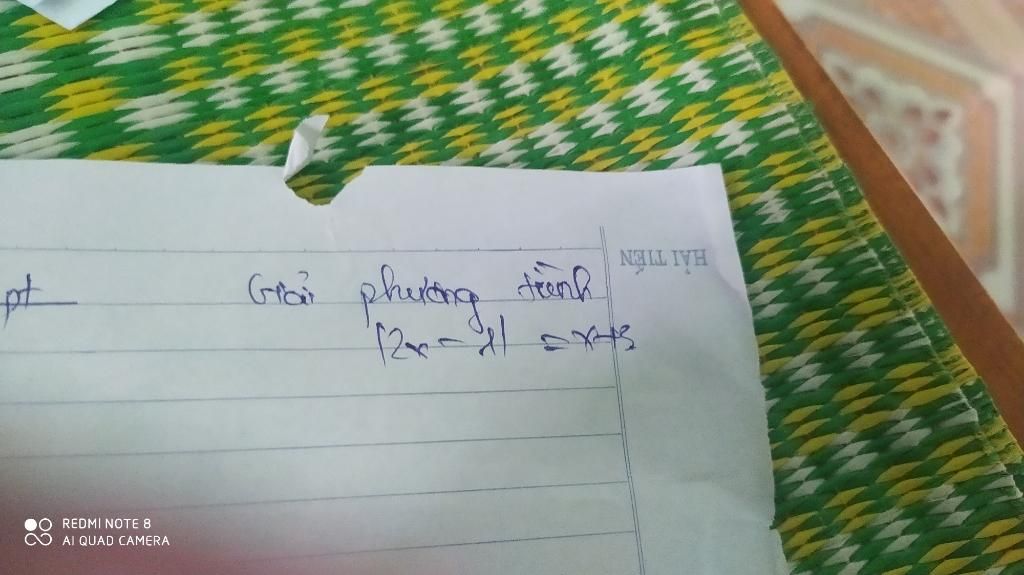 HẢI TIẾN
pt Giải phương trình
|2x - 1| = x+5
REDMI NOTE 8
AI QUAD CAMERA